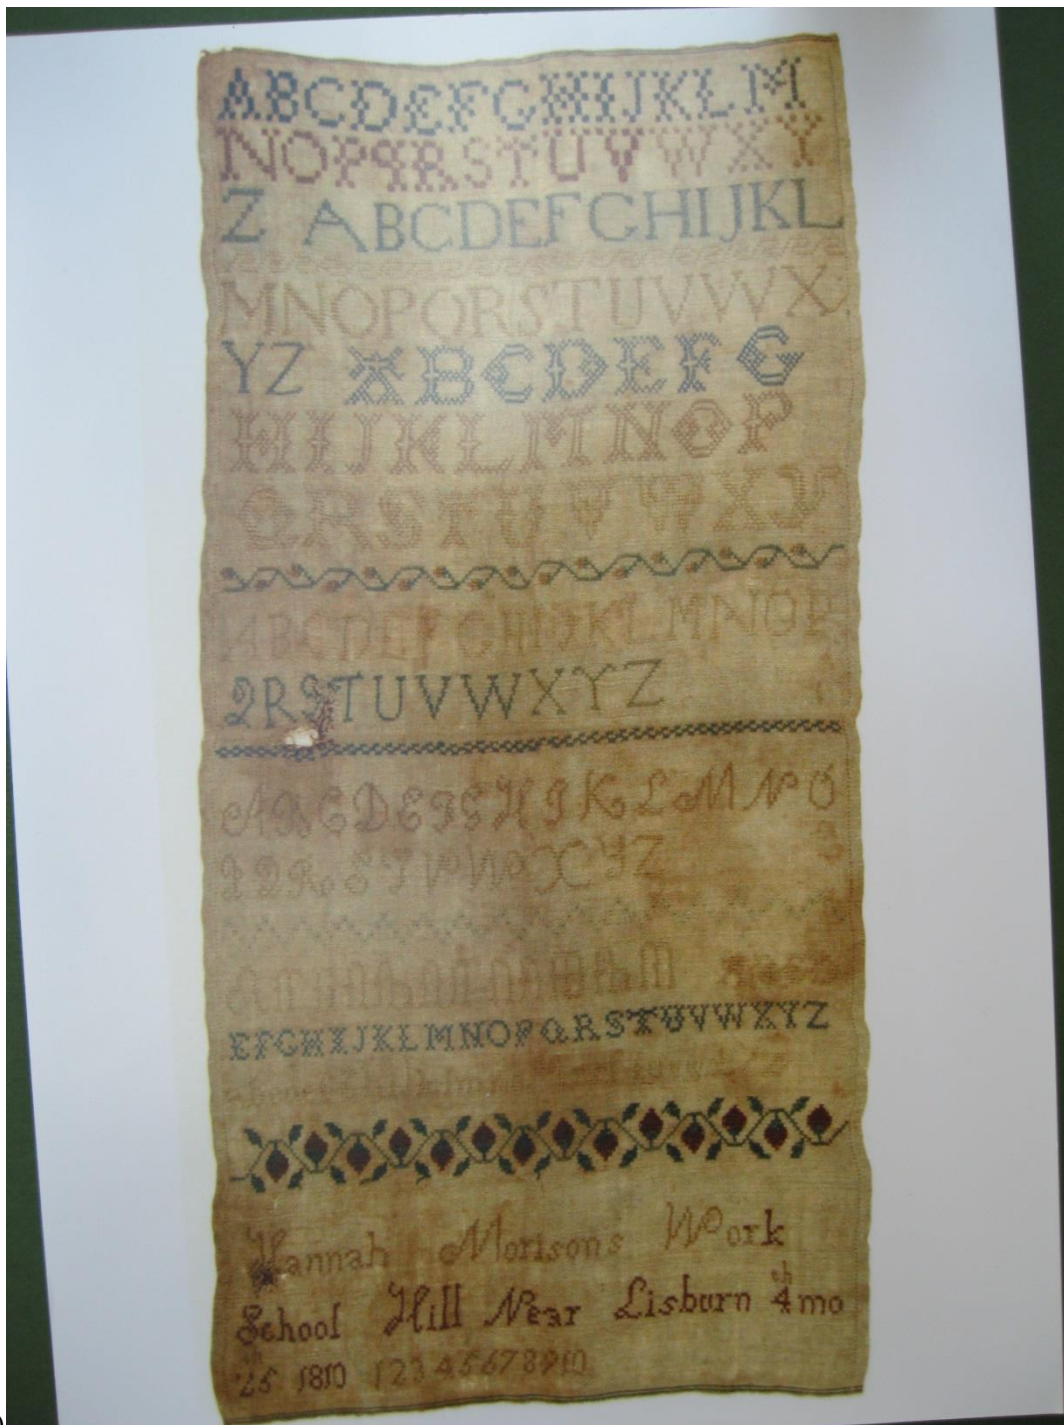 ABCDEFGHIJKLM
NOPQRSTUVWXY
Z ABCDEFGHIJKL
MNOPQRSTUVWX
YZ ABCDEFG
HIJKLMNOP
QRSTUVWXY
ABCDEFGHIJKLMNOP
QRSTUVWXYZ
ABCDEFGHIKLMNO
PQRSTVWXYZ
EFGHIJKLMNOPQRSTUVWXYZ
Hannah Morisons Work
School Hill Near Lisburn 4th mo
25th 1810 12345678910